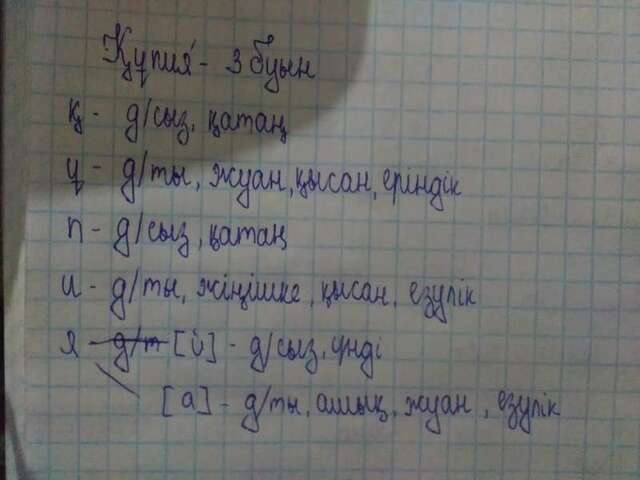 Құпия - 3 буын
қ - д/сыз, қатаң
ұ - д/ты, жуан, қысан, еріндік
п - д/сыз, қатаң
и - д/ты, жіңішке, қысан, езулік
я [й] - д/сыз, үнді
[а] - д/ты, ашық, жуан, езулік